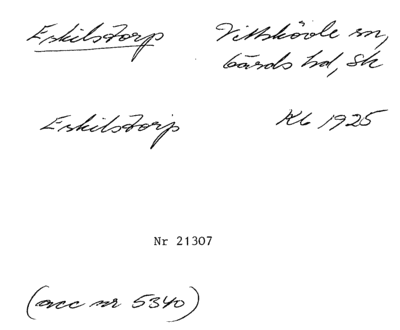 Eskilstorp Vittskövle sn,
Gärds hd, Sk
Eskilstorp Kb 1925
Nr 21307
(acc nr 5340)